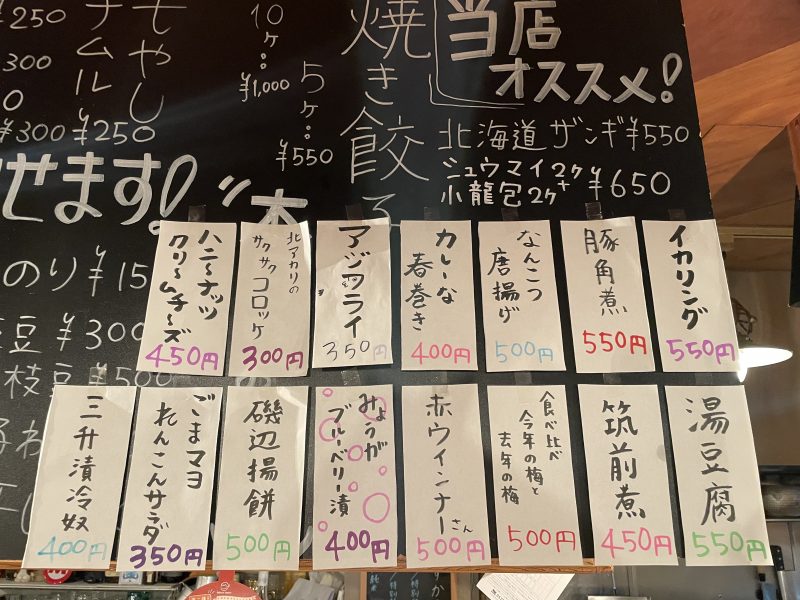 当店
オススメ!
北海道ザンギ¥550
シュウマイ2ヶ+
小龍包2ヶ
¥650
焼き餃子
5ヶ…
¥550
10ヶ…
¥1,000
もやし
ナムル
¥250
¥250
300
¥300
せます!
のり¥15
豆¥300
枝豆¥500
イカリング
550円
豚角煮
550円
なんこつ
唐揚げ
500円
カレーな
春巻き
400円
アジフライ
350円
北アカリの
サクサク
コロッケ
300円
ハニ〜ナッツ
クリ〜ムチ〜ズ
450円
湯豆腐
550円
筑前煮
450円
食べ比べ
今年の梅と
去年の梅
500円
赤ウインナーさん
500円
みょうが
ブルーベリー漬
400円
磯辺揚餅
500円
ごまマヨ
れんこんサラダ
350円
三升漬冷奴
400円